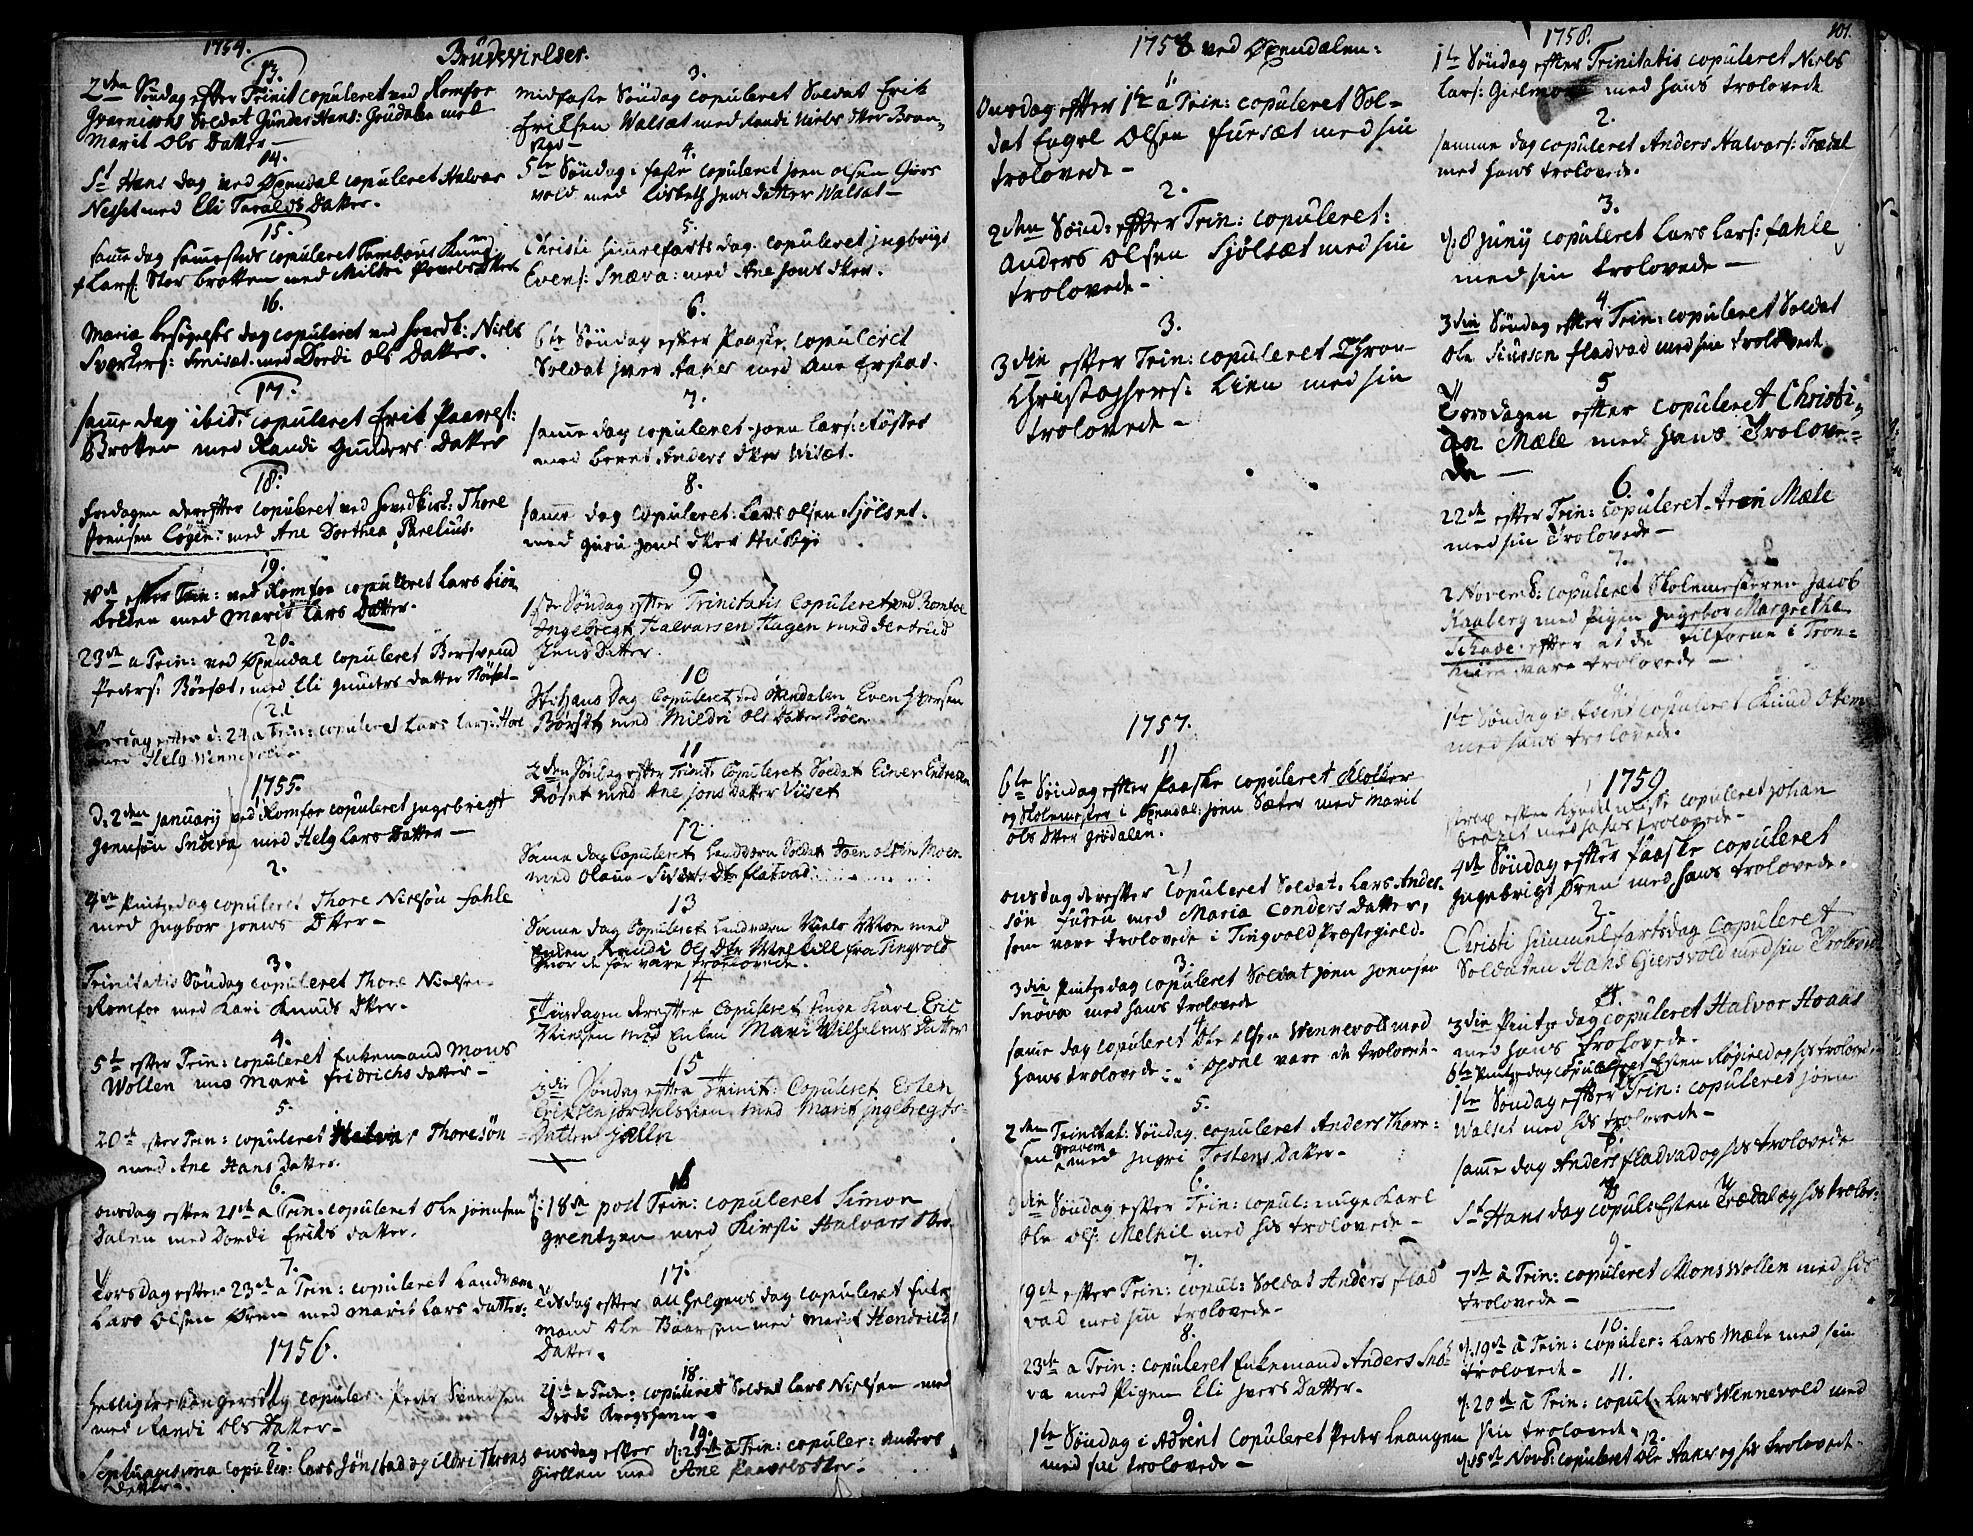 1754.
Brudvielser.
13.
2den Söndag efter Trinit copuleret ved Romfoe
Soldat Gunder Hans: Grudalen med
Marit Ols Datter —
14.
St Hans dag ved Øxendal copuleret Halvor
Nesset med Eli Taralds Datter.
15.
samme dag sammesteds copuleret Tambour Knud
Lars: Storbrotten med Mildri Povels dtter
16.
Mariæ besøgelses dag copuleret ved hovedk: Niels
Sværkers: med Dordi Ols Datter.
17.
samme dag ibid: copuleret Erik Paavels:
Brotten med Randi Gunders Datter
18.
fredagen derefter copuleret ved hovedkirk: Thore
Jonsen med Ane Dorthea Parelius.
19.
18de efter Trin: ved Romfoe copuleret Lars
med Marit Lars Datter.
20.
23de a Trin: ved Øxendal copuleret Bersvend
Peders: Börset, med Eli Gunders datter
21
efter d: 24 a Trin: copuleret Lars Lars:
med Helg Wennevold
1755.
1
D: 2den january ved Romfoe copuleret Ingebrigt
Jonsön Snöeva med Helg Lars Datter —
2.
4de Pintzedag copuleret Thore Nielsön Fahle
med Ingbor Jonws Dtter —
3.
Trinitatis Söndag copuleret Thore Nielsen
Romfoe med Kari Knuds dter.
4.
5te efter Trin: copuleret Enkemand Mons
Wollen med Mari Fridrichs datter —
5.
20de efter Trin: copuleret Halvor Thoresön
med Ane Hans Datter.
6.
onsdag efter 21de a Trin: copuleret Ole Jönnsen
Dalen med Dordi Eriks datter.
7.
Torsdag efter 23de a Trin: copuleret Landværn
Lars Olsen Øren med Marit Lars datter:
1756.
1
Hellig tre kongers dag copuler: Peder Svendsen
med Randi Ols Datter —
2.
Septuagesima copuler: Lars Jönstad og Ildri Throns
Datter —
3.
midfaste Söndag copuleret Soldat Erik
Eriksen Walsæt med Randi Niels dter
4.
5te Söndag i faste copuleret Joen Olsen Giörs
vold med Lisbeth Jens datter Walsæt —
5.
Christi himmelfarts dag copuleret Ingbrigt
Evens: Snæva: med Ane Jons dter.
6.
6te Söndag efter Paaske copuleret
Soldat Iver Haaker med Ane Erstad.
7.
samme dag copuleret Joen Lars: Röstet
med Beret Anders dter Wiset.
8.
samme dag copuleret Lars Olsen Sjölset.
med Guru Jons dter Husbye
9
1ste Söndag efter Trinitatis Copuleret ved Romfoe
Ingebregt Halvorsen Hagen med Gertrud
Jens Datter.
10
St: Hans Dag Copuleret ved Öxendalen Even Iversen
Børset med Mildri Ols Datter Böen
11
2den Söndag efter Trinit: Copuleret Soldat Einer Endresen
Röset med Ane Jons Datter Viiset
12
Same dag Copuleret Landværn Soldat Joen Olsen Moen
med Olaug Siverts Dtr flatvad
13
Same dag Copuleret Landværn Niels Moe med
Enken Randi Ols Dtr Meltill fra Tingvold
hvor de før vare troelovede.
14
Tiisdagen derefter Copuleret Unge Karl Eric
Nielsen med Enken Mari Wilhelms Datter
15
3die Söndag efter Trinit: Copuleret Esten
Eriksen Jordalslien med Marit Ingebregts
Datter Jælln
16
d: 18de post Trin: copuleret Simon
Grentzen med Kirsti Halvors dter
17.
Tisdag efter all helgens dag copuleret Enke
mand Ole Baarsen med Marit Hendrichs
Datter.
18.
21de a Trin: copuleret Soldat Lars Nielsen med
Dordi
19.
onsdag efter d: a Trin: copuler: Anders
Giellen med Ane Paavels dter
1758 ved Øxendalen:
1.
Onsdag efter 1te a Trin: copuleret Sol-
dat Engel Olsen Fursæt med sin
trolovede —
2.
2den Sönd: efter Trin: copuleret:
Anders Olsen Sjölsæt med sin
trolovede —
3.
3die efter Trin: copuleret Thron
Christophers: Lien med sin
trolovede —
1757.
1
6te Söndag efter Paaske copuleret Klokker
og Skolemester i Øxendal: Joen Sæter med Marit
Ols dter Grødalen.
2
onsdag derefter Copuleret Soldat: Lars Anders
sön Furen med Maria Conders Datter,
som vare trolovede i Tingvold Præstegield.
3.
3die Pintzedag copuleret Soldat Joen Joensen
Snöva med hans trolovede
4
samme dag copuleret Ole Olsen Wennevold med
hans trolovede: i Opdal vare de trolovet.
5.
2den Trinitat: Söndag copuleret Anders Thore:
sen Gravem med Ingri Tostens Datter —
6.
3die Söndag efter Trin: copul: unge Karl
Ole Ols: Melhil med hds trolovede —
7.
19de efter Trin: copul: Soldat Anders Flad
vad med sin trolovede —
8.
23de a Trin: copuleret Enkemand Anders Snö-
va med Pigen Eli Ivers Datter.
9
1te Söndag i Advent Copuleret Peder Leangen
med sin trolovede —
1758.
101.
1te Söndag efter Trinitatis copuleret Niels
Lars: med hans trolovede
2.
samme dag copuleret Anders Halvors: Trædal
med hans trolovede.
3.
d: 8 Junij copuleret Lars Lars: Fahle
med sin trolovede —
4
3die Söndag efter Trin: copuleret Soldat
Ole Siursen Fladvad med sin trolovede
5
Torsdagen efter copuleret Christi-
an Mæle med hans Trolove-
de —
6.
22de efter Trin: copuleret Aren Mæle
med sin Trolovede —
7.
2 Novemb: copuleret Skolemesteren Jacob
Kaaberg med Pigen Ingebor Margrethe
Schade. efter at de tilforne i Tron-
hiem vare trolovede —
1te Söndag i Advent copuleret Knud
med hans trolovede.
1759
1
efter Kyndelmisse copuleret Johan
med hans trolovede —
2
4de Söndag efter Paaske copuleret
Ingebrigt Øren med hans trolovede.
3.
Christi Himmelfartsdag Copuleret
Soldaten Hans Giersvold med sin Trolovede
4.
3die Pintzedag copuleret Halvor Hoaas
med hans trolovede.
6te Pintzedag copuleret Esten og hds trolovede
1te Söndag efter Trin: copuleret Joen
Walset med hds trolovede —
samme dag Anders Fladvad og hds trolovede
St Hans dag copul: Esten Trædal og hds trolov:
9.
7de a Trin: copuleret Mons Wollen med hds
trolovede —
10.
d: 19de a Trin: copuler: Lars Mæle med sin
trolovede —
11.
d: 20de a Trin: copul: Lars Wennevold med
sin trolovede.
12.
d: 15de Novb: copuleret Ole Haker og hds trolovede.